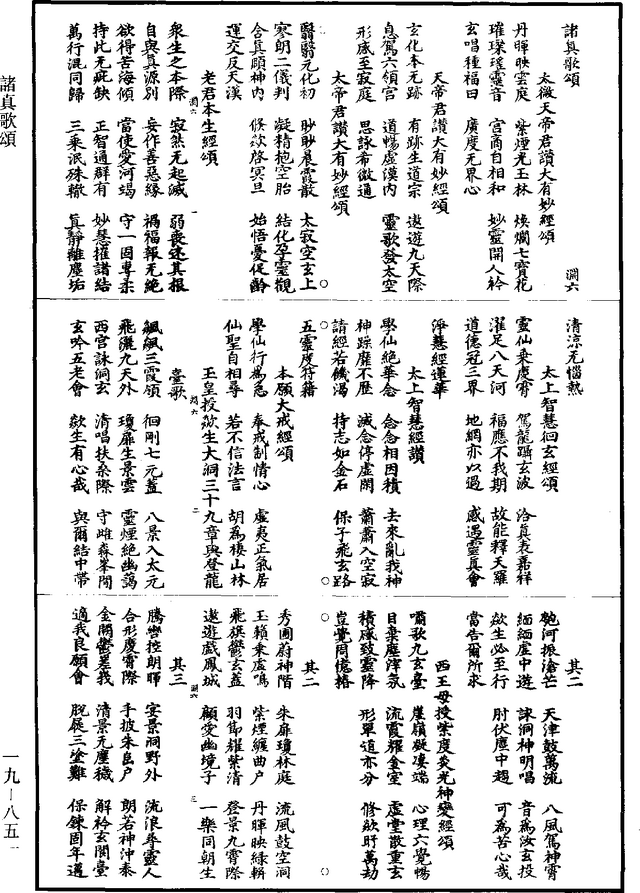 諸真歌頌　澗六
太微天帝君讚大有妙經頌
丹暉映雲庭　紫煙光玉林　煥爛七寶花
璀璨瑤靈音　宮商自相和　妙靈開人衿
玄唱種福田　廣度无界心
天帝君讚大有妙經頌
玄化本无跡　有跡生道宗　遨遊九天際
息駕六領宮　道暢虛漠內　靈歌發太空
形感至寂庭　思詠希微通
太帝君讚大有妙經頌
翳翳元化初　眇眇晨霞散　太寂空玄上
寥朗二儀判　凝精抱空胎　結化孕靈觀
含真顧神內　倏欻啓冥旦　始悟憂促齡
運交反天漢
澗六　一
老君本生經頌
眾生之本際　寂然无起滅　弱喪迷其根
自與真源別　妄作善惡緣　禍福報无絕
欲得苦海傾　當使愛河竭　守一固專柔
持此无疵缺　正智通群有　妙慧摧諸結
萬行混同歸　三乘泯殊轍　真靜離塵垢
清涼无惱熱
太上智慧徊玄經頌
靈仙乘慶霄　駕龍躡玄波　洽真表嘉祥
濯足八天河　福應不我期　故能釋天羅
道德冠三界　地網亦以過　感遇靈真會
淨慧經蓮華
太上智慧經讚
學仙絕華念　念念相因積　去來亂我神
神躁靡不歷　滅念停虛閑　蕭蕭入空寂
請經若飢渴　持志如金石　保子飛玄路
五靈度符籍
本願大戒經頌
學仙行為急　奉戒制情心　虛夷正氣居
仙聖自相尋　若不信法言　胡為棲山林
玉皇授欻生大洞三十九章與登龍
澗六　二
臺歌
飆飆三霞領　徊剛七元蓋　八景入太元
飛灑九天外　瓊扉生景雲　靈煙絕幽藹
西宮詠洞玄　清唱扶桑際　守雌森峯間
玄吟五老會　欻生有心哉　與爾結中帶
其二
匏河振滄茫　天津鼓萬流　八風駕神霄
緬緬虛中遊　誺洞神明唱　音為汝玄投
欻生必至行　肘伏塵中趨　可為苦心哉
當告爾所求
西王母授紫度炎光神變經頌
嘯歌九玄臺　崖嶺凝淒端　心理六覺暢
目棄塵滓氛　流霞耀金室　虛堂散重玄
積感致靈降　形單道亦分　修欻盱萬劫
豈覺周億椿
其二
秀圃蔚神階　朱扉瓊林庭　流風鼓空洞
玉籟乘虛鳴　紫煙纏曲戶　丹暉映綠軿
飛旗鬱玄蓋　羽節耀紫清　登景九霄際
遨遊戲鳳城　顧愛幽境子　一樂同朝生
澗六　三
其三
騰轡控朝暉　宴景洞野外　流浪尋靈人
合形慶霄際　手披朱扃戶　朗若神沖泰
金闕鬱嵳我　清景无塵穢　解衿玄闕臺
適我良願會　脫屣三塗難　保鍊固年邁
諸真歌頌
一九－八五一